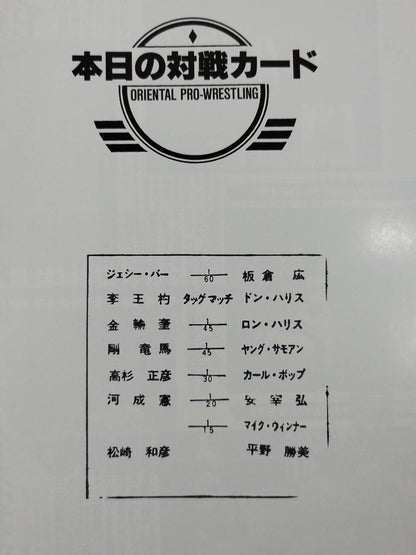 本日の対戦カード
ORIENTAL PRO-WRESTLING
ジェシー・バー 1/60 板倉 広
李王杓 タッグマッチ ドン・ハリス
金輪奎 1/45 ロン・ハリス
剛竜馬 1/45 ヤング・サモアン
高杉 正彦 1/30 カール・ポップ
河成憲 1/20 安宰弘
1/15 マイク・ウィンナー
松崎 和彦 平野 勝美